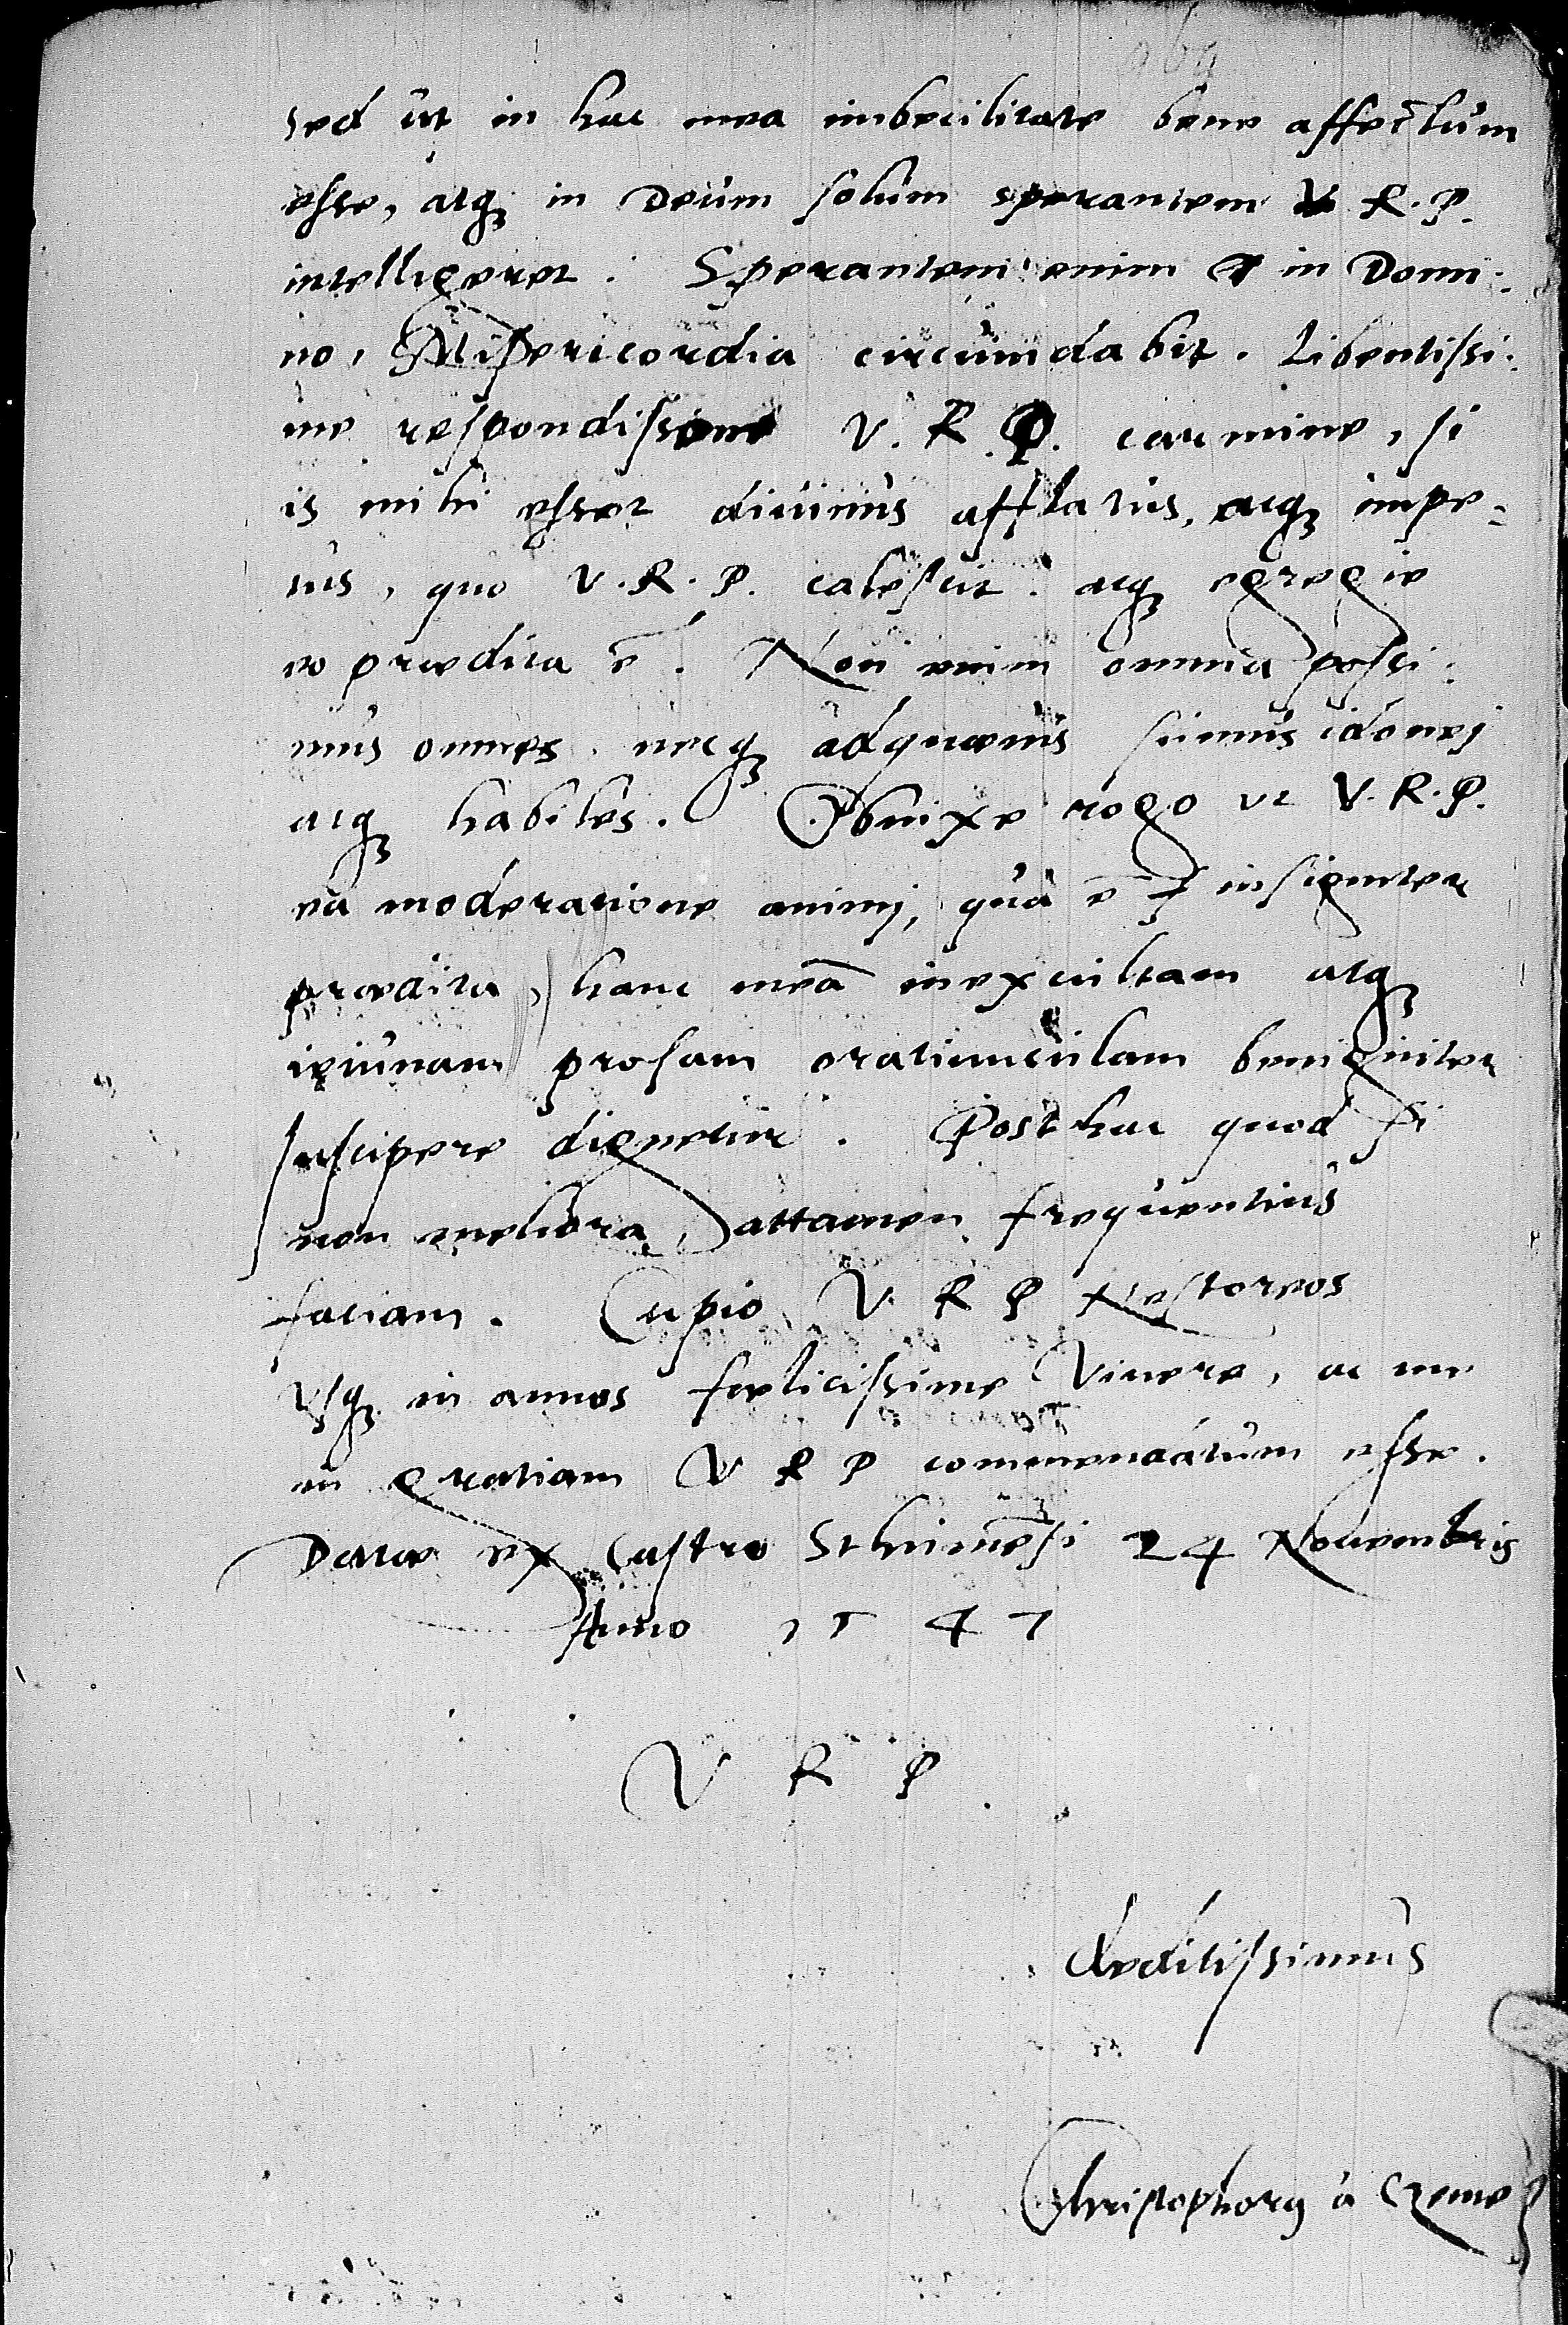 sed ut in hac mea imbecilitate bene affectum
esse, atqꝫ in Deum solum sperantem V R. P.
intelligeret. Sperantem enim in Domi:
no, Misericordia circumdabit. Libentissi:
me respondissem V. R. P. carmine, si
is mihi esset diuinus afflatus, atqꝫ impe:
tus, quo V. R. P. calescit. atqꝫ egregie
eo prædita ē. Non enim omnia possu:
mus omnes. neqꝫ ad quæuis sumus idonej
atqꝫ habiles. Obnixe rogo ut V. R. P.
ea moderatione animj, qua ē insigniter
prædita, hanc meā inexcultam atqꝫ
ieiunam prosam oratiunculam benigniter
suscipere dignetur. Posthac quod si
non meliora, attamen frequentius
faciam. Cupio V R P Nestoreos
vsqꝫ in annos fœlicissime Viuere, ac me
in gratiam V R P commendatum esse.
Datæ ex Castro Sthumēsi 24 Nouembris
Anno 1547
V R P
deditissimus
Christophorus à Czeme